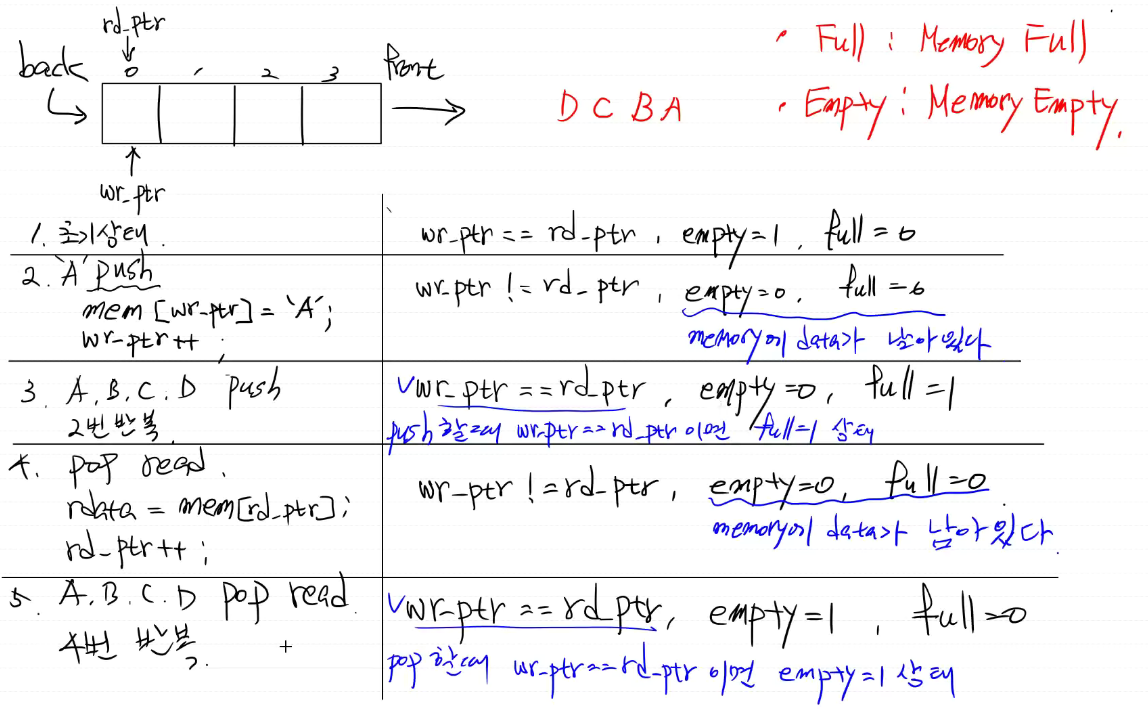 rd_ptr
back 0 1 2 3 front
D C B A
wr_ptr
• Full : Memory Full
• Empty : Memory Empty.
1. 초기상태.
wr_ptr == rd_ptr, empty=1, full=0
2. 'A' push
mem[wr_ptr] = 'A';
wr_ptr++;
wr_ptr != rd_ptr, empty=0, full=0
memory에 data가 남아있다
3. A.B.C.D push
2번 반복.
wr_ptr == rd_ptr, empty=0, full=1
push 할때 wr_ptr==rd_ptr 이면 full=1 상태
4. pop read.
rdata = mem[rd_ptr];
rd_ptr++;
wr_ptr != rd_ptr, empty=0, full=0
memory에 data가 남아있다.
5. A.B.C.D pop read.
4번 반복
wr_ptr == rd_ptr, empty=1, full=0
pop 할때 wr_ptr==rd_ptr 이면 empty=1 상태